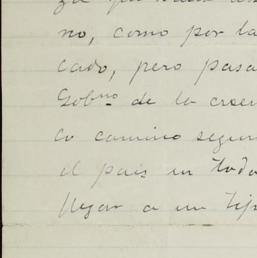 no, como por la
cado, pero pasa
Gobno. de la
co camino segun
el pais en todo
llegar a un tip